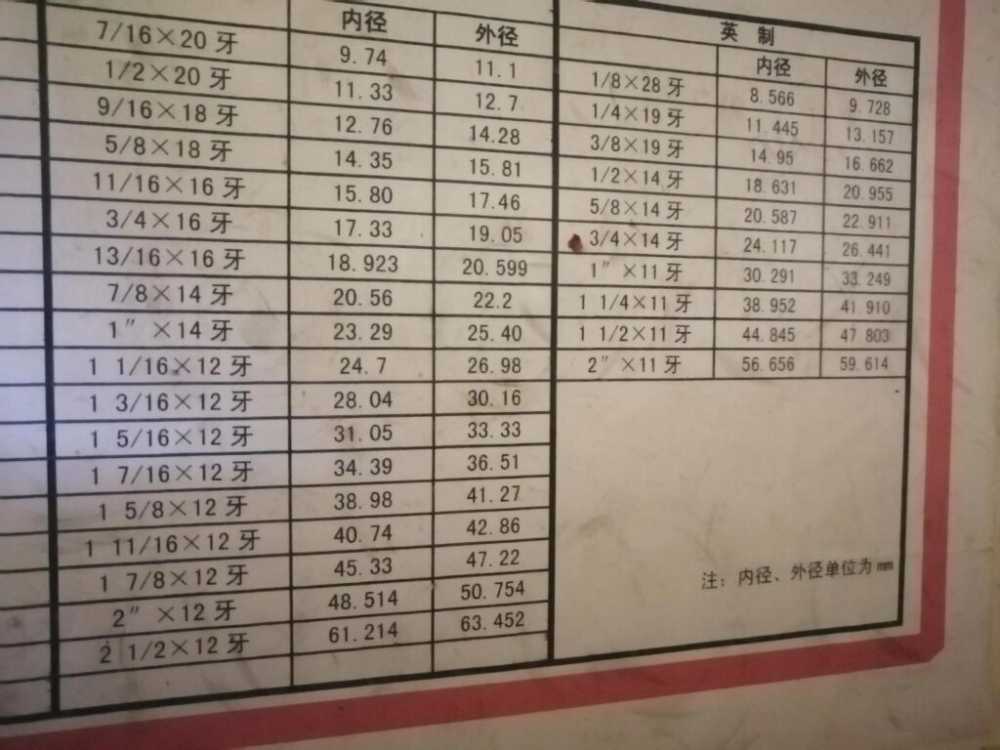 内径 外径
7/16×20 牙 9.74 11.1
1/2×20 牙 11.33 12.7
9/16×18 牙 12.76 14.28
5/8×18 牙 14.35 15.81
11/16×16 牙 15.80 17.46
3/4×16 牙 17.33 19.05
13/16×16 牙 18.923 20.599
7/8×14 牙 20.56 22.2
1″ ×14 牙 23.29 25.40
1 1/16×12 牙 24.7 26.98
1 3/16×12 牙 28.04 30.16
1 5/16×12 牙 31.05 33.33
1 7/16×12 牙 34.39 36.51
1 5/8×12 牙 38.98 41.27
1 11/16×12 牙 40.74 42.86
1 7/8×12 牙 45.33 47.22
2″ ×12 牙 48.514 50.754
2 1/2×12 牙 61.214 63.452
英 制
内径 外径
1/8×28 牙 8.566 9.728
1/4×19 牙 11.445 13.157
3/8×19 牙 14.95 16.662
1/2×14 牙 18.631 20.955
5/8×14 牙 20.587 22.911
3/4×14 牙 24.117 26.441
1″ ×11 牙 30.291 33.249
1 1/4×11 牙 38.952 41.910
1 1/2×11 牙 44.845 47.803
2″ ×11 牙 56.656 59.614
注：内径、外径单位为 mm